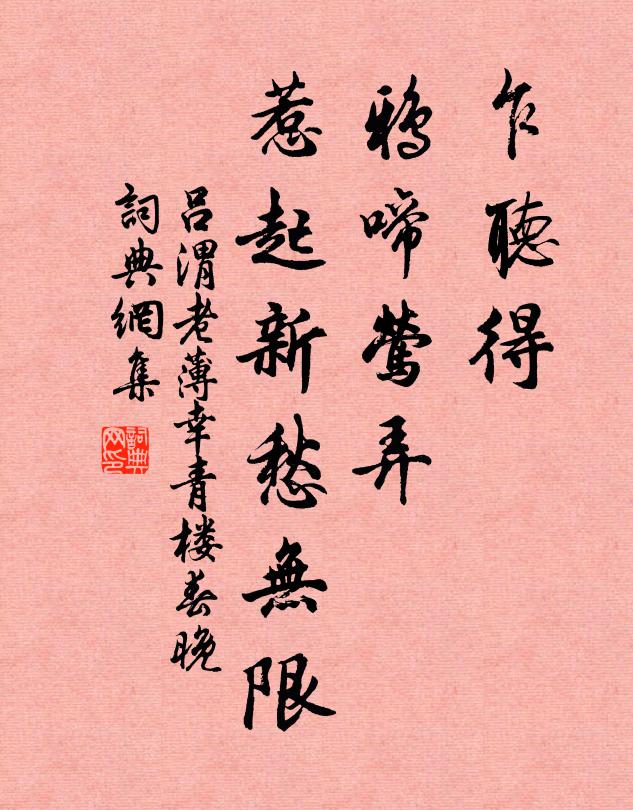 乍聽得
鴉啼鶯弄
惹起新愁無限
呂渭老薄幸青楼春晚
詞典網集
詞典網印